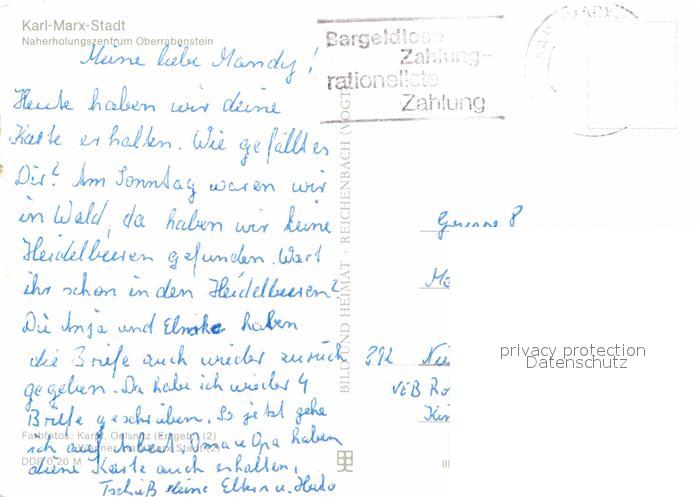 Karl-Marx-Stadt
Naherholungszentrum Oberrabenstein
Meine liebe Mandy!
Heute haben wir deine
Karte erhalten. Wie gefällt es
Dir? Am Sonntag waren wir
in Wald, da haben wir keine
Heidelbeeren gefunden. Wart
ihr schon in den Heidelbeeren?
Die Anja und haben
die Briefe auch wieder zurück
gegeben. Da habe ich wieder 4
Briefe geschrieben. So jetzt gehe
ich auf Arbeit. Oma u Opa haben
deine Karte auch erhalten.
Tschüß deine Eltern u.
Farbfotos: Karpf, Oelsnitz (Erzgeb.) (2)
DDR 0,20 M
BILD UND HEIMAT · REICHENBACH (VOGTL
Bargeldlose
Zahlung-
rationellste
Zahlung
392
VEB Ro
privacy protection
Datenschutz